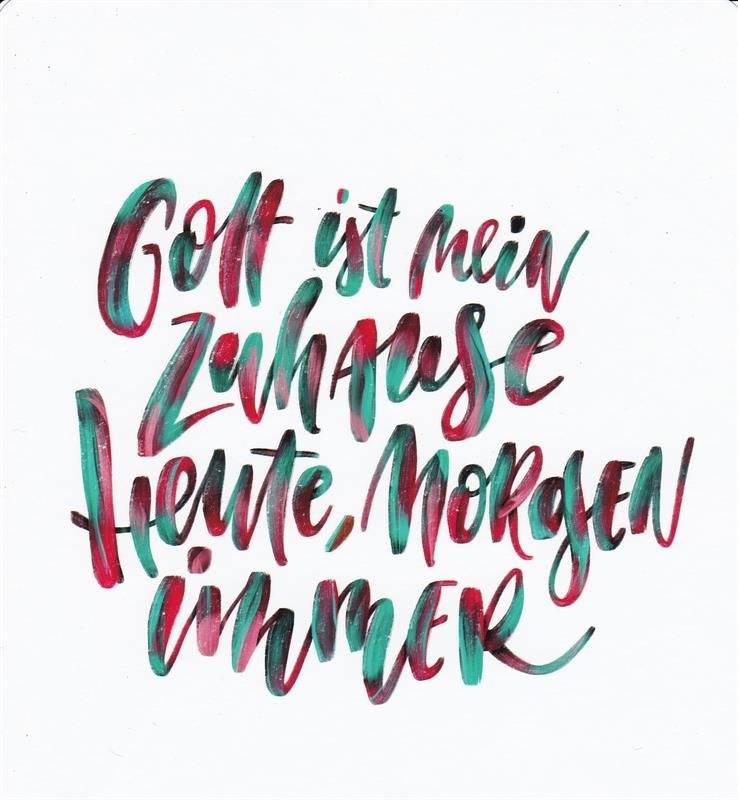 Gott ist mein
zuhause
Heute, Morgen
immer